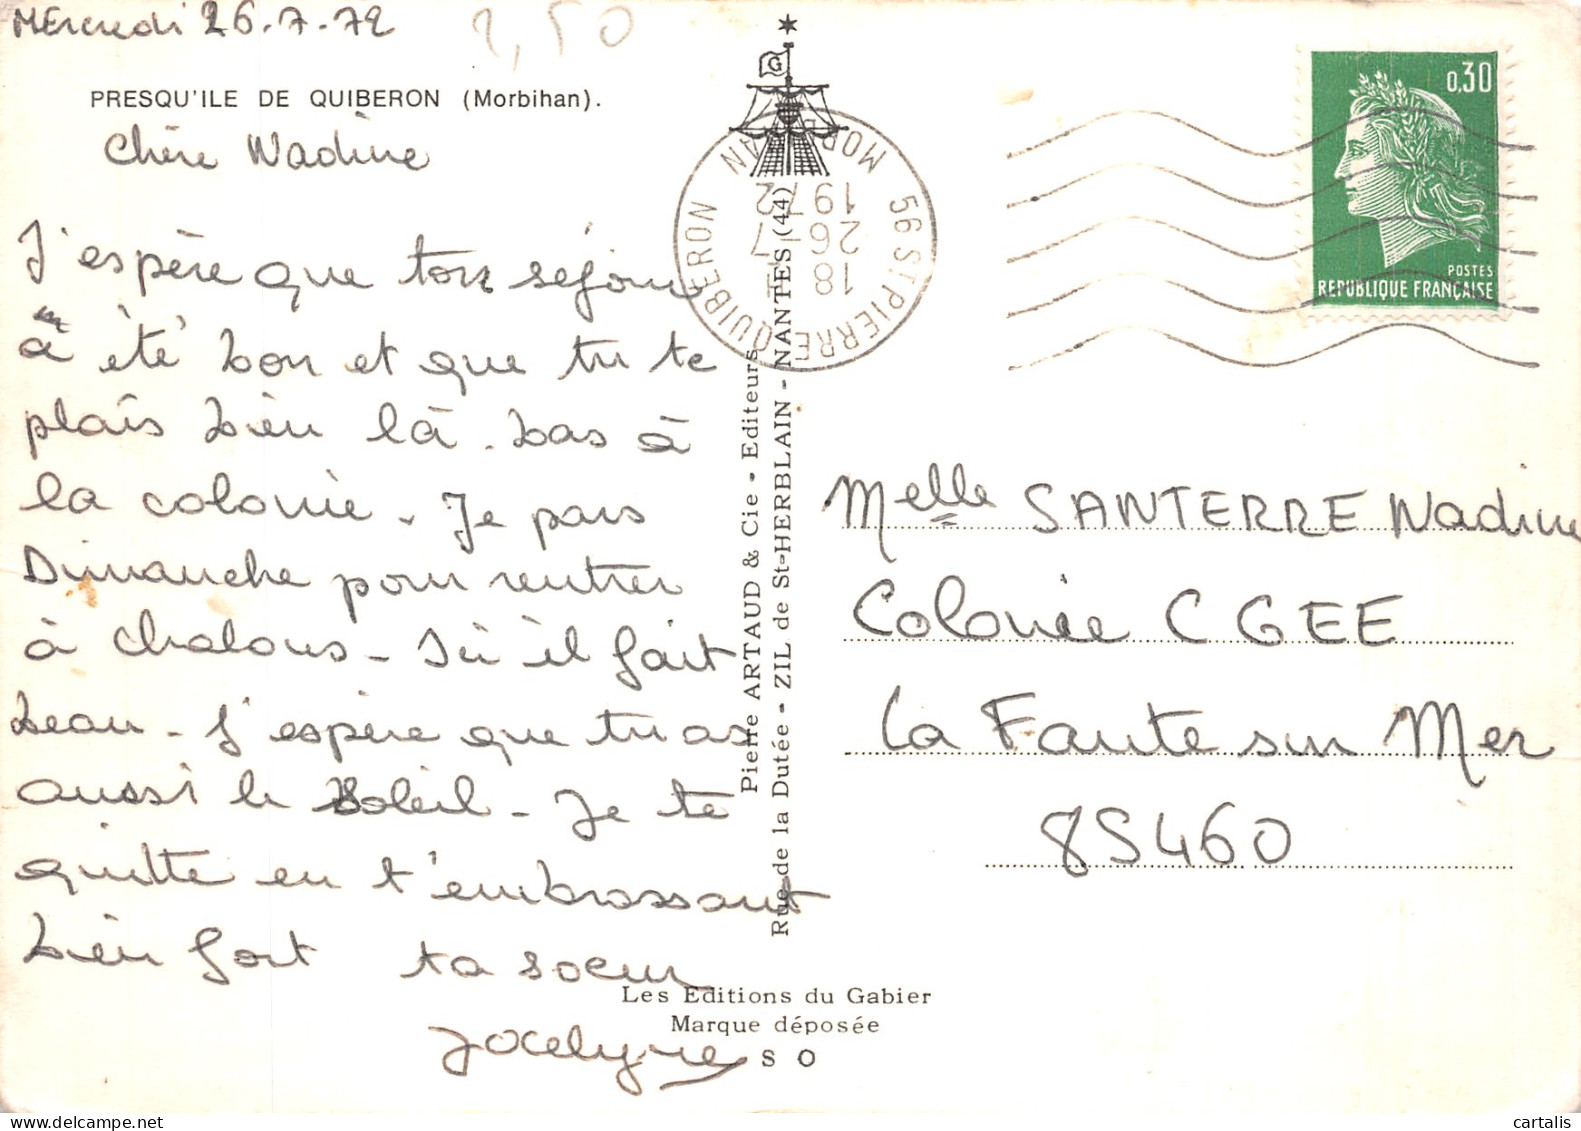 Mercredi 26.7.72
2,50
PRESQU'ILE DE QUIBERON (Morbihan).
Chère Nadine
J'espère que ton séjour
a été bon et que tu te
plais bien là-bas à
la colonie. Je pars
Dimanche pour rentrer
à Chalons - Ici il fait
beau - J'espère que tu as
aussi le soleil - Je te
quitte en t'embrassant
bien fort ta soeur
Jocelyne
G
Pierre ARTAUD & Cie - Editeurs
Rue de la Dutée - ZIL de St-HERBLAIN - NANTES (44)
Les Editions du Gabier
Marque déposée
S O
56 ST PIERRE QUIBERON
MORBIHAN
18 H
26 - 7
1972
0,30
POSTES
REPUBLIQUE FRANÇAISE
Melle SANTERRE Nadine
Colonie CGEE
La Faute sur Mer
85460
cartalis